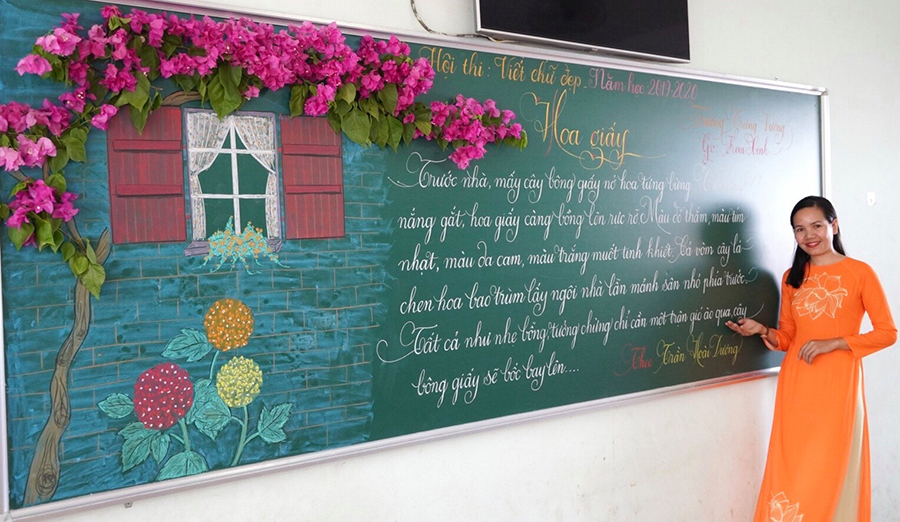 Hội thi : Viết chữ đẹp - Năm học 2019-2020
Hoa giấy
Trường Vương
Gv:
Trước nhà, mấy cây bông giấy nở hoa tưng bừng.
nắng gắt, hoa giấy càng bồng lên rực rỡ. Màu đỏ thắm, màu tím
nhạt, màu da cam, màu trắng muốt tinh khiết. Cả vòm cây lá
chen hoa bao trùm lấy ngôi nhà lẫn mảnh sân nhỏ phía trước.
Tất cả như nhẹ bỗng, tưởng chừng chỉ cần một trận gió ào qua, cây
bông giấy sẽ bốc bay lên....
Theo Trần Hoài Dương